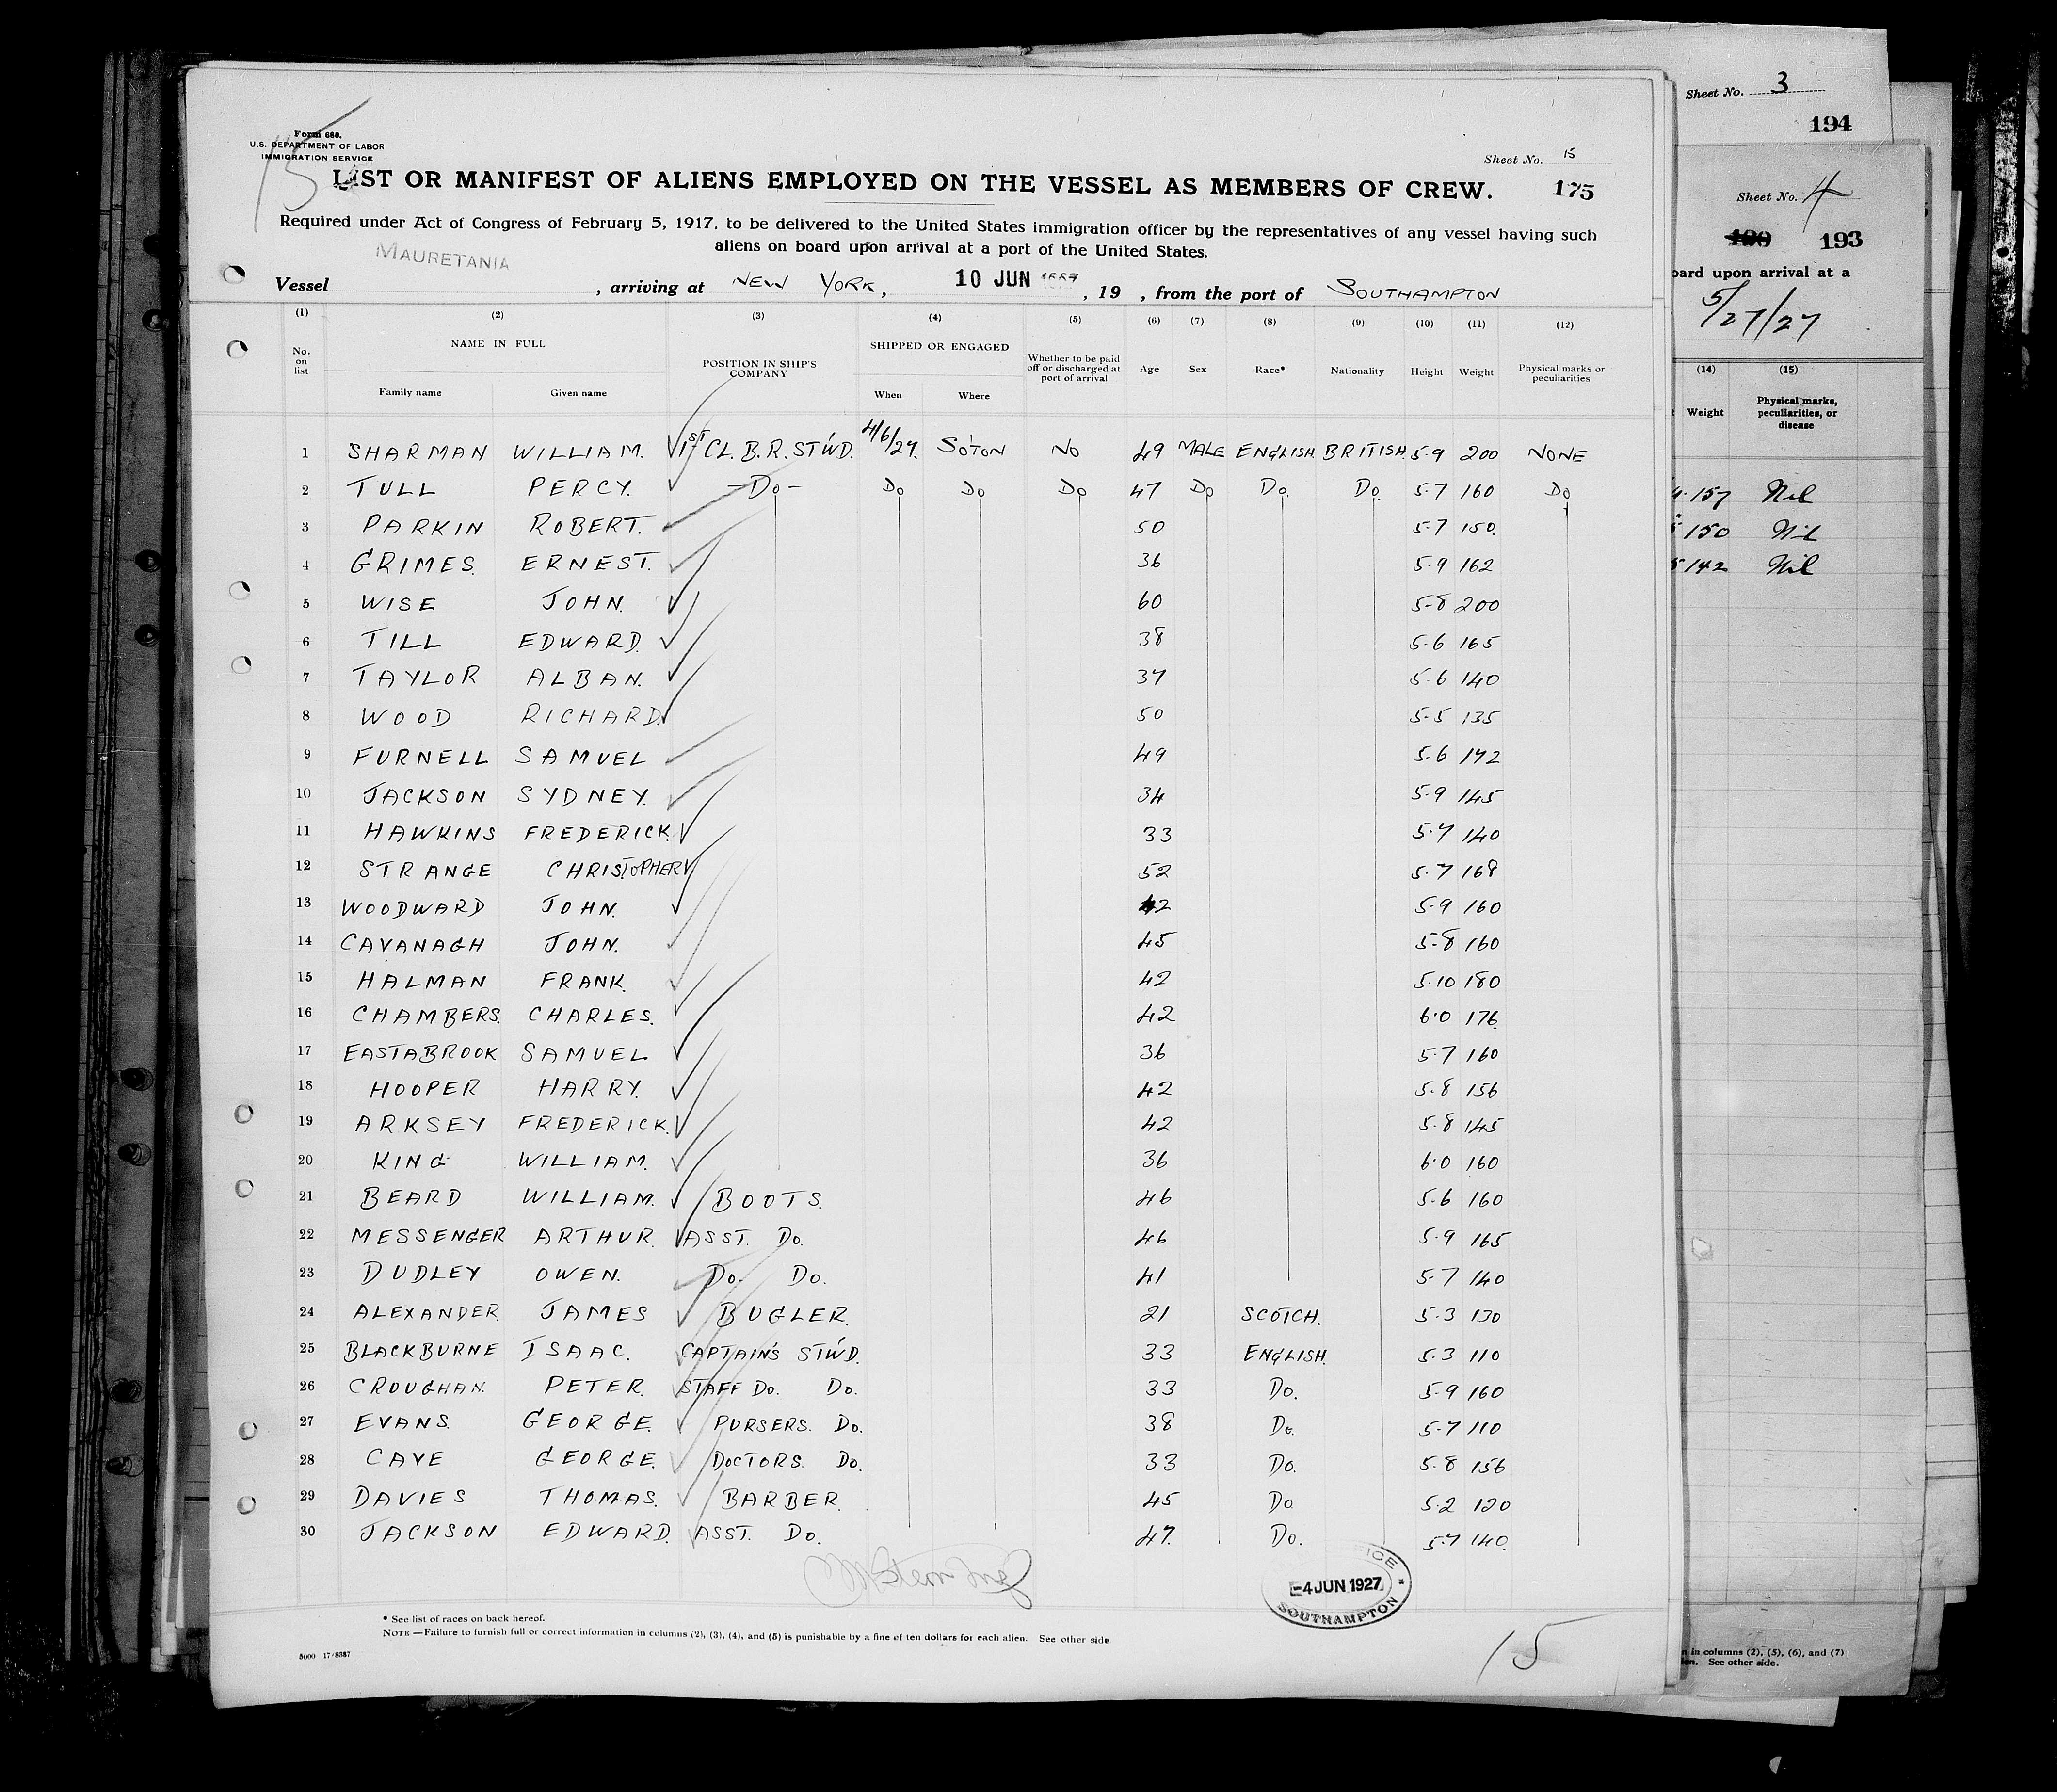 Form 680.
U.S. DEPARTMENT OF LABOR
IMMIGRATION SERVICE
15
Sheet No. 15
175
LIST OR MANIFEST OF ALIENS EMPLOYED ON THE VESSEL AS MEMBERS OF CREW.
Required under Act of Congress of February 5, 1917, to be delivered to the United States immigration officer by the representatives of any vessel having such
aliens on board upon arrival at a port of the United States.
Vessel MAURETANIA, arriving at NEW YORK, 10 JUN 1927, 19 , from the port of SOUTHAMPTON
(1) (2) (3) (4) (5) (6) (7) (8) (9) (10) (11) (12)
No. on list NAME IN FULL POSITION IN SHIP'S COMPANY SHIPPED OR ENGAGED Whether to be paid off or discharged at port of arrival Age Sex Race* Nationality Height Weight Physical marks or peculiarities
Family name Given name When Where
1 SHARMAN WILLIAM. 1ST CL. B.R. ST'WD. 4/6/27. SO'TON NO 49 MALE ENGLISH. BRITISH. 5-9 200 NONE
2 TULL PERCY. -DO- DO DO DO 47 DO DO. DO. 5-7 160 DO
3 PARKIN ROBERT. 50 5-7 150.
4 GRIMES. ERNEST. 36 5-9 162
5 WISE JOHN. 60 5-8 200
6 TILL EDWARD. 38 5-6 165
7 TAYLOR ALBAN. 37 5-6 140
8 WOOD RICHARD. 50 5-5 135
9 FURNELL SAMUEL 49 5-6 142
10 JACKSON SYDNEY. 34 5-9 145
11 HAWKINS FREDERICK. 33 5-7 140
12 STRANGE CHRISTOPHER 52 5-7 168
13 WOODWARD JOHN. 42 5-9 160
14 CAVANAGH JOHN. 45 5-8 160
15 HALMAN FRANK. 42 5-10 180
16 CHAMBERS. CHARLES. 42 6-0 176
17 EASTABROOK SAMUEL 36 5-7 160
18 HOOPER HARRY. 42 5-8 156
19 ARKSEY FREDERICK. 42 5-8 145
20 KING WILLIAM. 36 6-0 160
21 BEARD WILLIAM. BOOTS. 46 5-6 160
22 MESSENGER ARTHUR. ASST. DO. 46 5-9 165
23 DUDLEY OWEN. DO. DO. 41 5-7 140
24 ALEXANDER. JAMES BUGLER. 21 SCOTCH. 5-3 130
25 BLACKBURNE ISAAC. CAPTAIN'S ST'WD. 33 ENGLISH. 5-3 110
26 CROUGHAN. PETER. STAFF DO. DO. 33 DO. 5-9 160
27 EVANS. GEORGE. PURSERS. DO. 38 DO. 5-7 110
28 CAVE GEORGE. DOCTORS. DO. 33 DO. 5-8 156
29 DAVIES THOMAS. BARBER. 45 DO 5-2 120
30 JACKSON EDWARD. ASST. DO. 47. DO. 5-7 140.
-4 JUN 1927
SOUTHAMPTON
* See list of races on back hereof.
NOTE —Failure to furnish full or correct information in columns (2), (3), (4), and (5) is punishable by a fine of ten dollars for each alien. See other side
5000 17/8387
15
Sheet No. 3
194
Sheet No. 4
193
oard upon arrival at a
5/27/27
(14) (15)
Weight Physical marks, peculiarities, or disease
157 Nil
150 Nil
142 Nil
n in columns (2), (5), (6), and (7)
See other side.